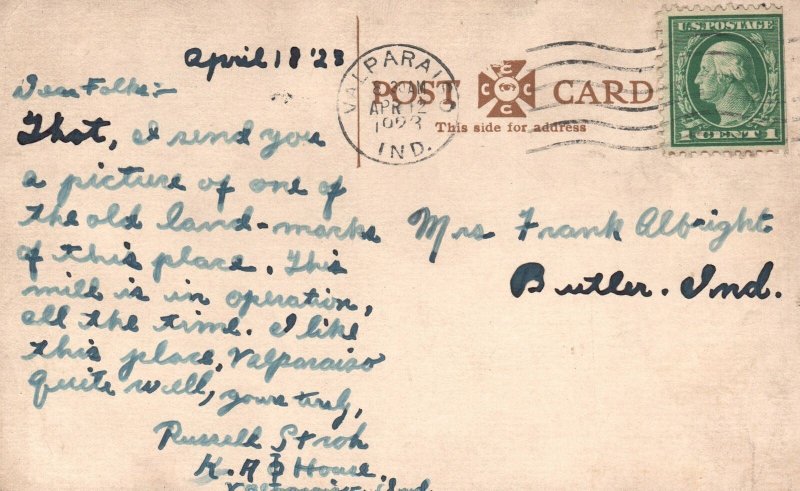 April 18 '23
Dear Folks:-
Thot, I send you
a picture of one of
the old land-marks
of this place. This
mill is in operation,
all the time. I like
this place, Valparaiso
quite well, yours truly,
Russell Stroh
K. A Φ House.
Valparaiso, Ind.
VALPARAISO
APR 12
1923
IND.
POST CARD
C C C C
This side for address
U.S. POSTAGE
1 CENT 1
Mrs Frank Albright
Butler. Ind.